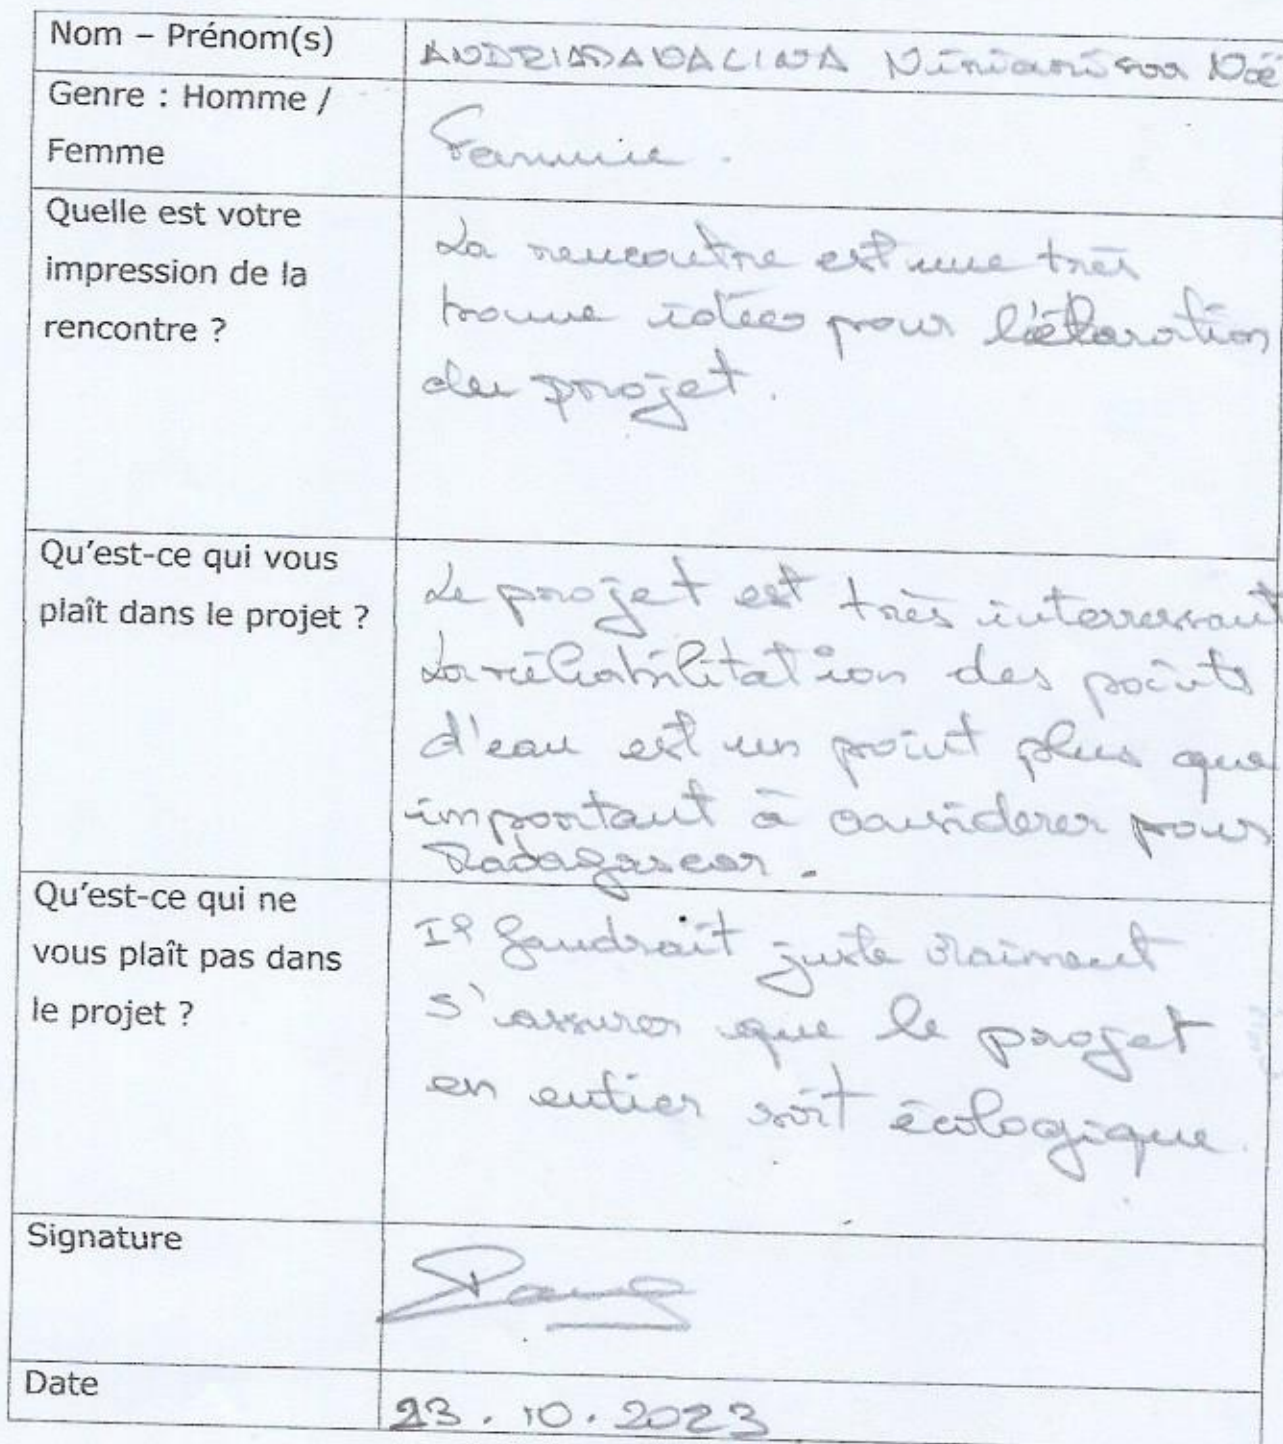 Nom – Prénom(s)
Genre : Homme /
Femme
Femme.
Quelle est votre
impression de la
rencontre ?
La rencontre est une très
bonne idées pour
du projet.
Qu'est-ce qui vous
plaît dans le projet ?
Le projet est très interressant
La réhabilitation des points
d'eau est un point plus que
important à considerer pour
Madagascar.
Qu'est-ce qui ne
vous plaît pas dans
le projet ?
Il faudrait juste vraiment
s'assurer que le projet
en entier soit écologique.
Signature
Date
23.10.2023